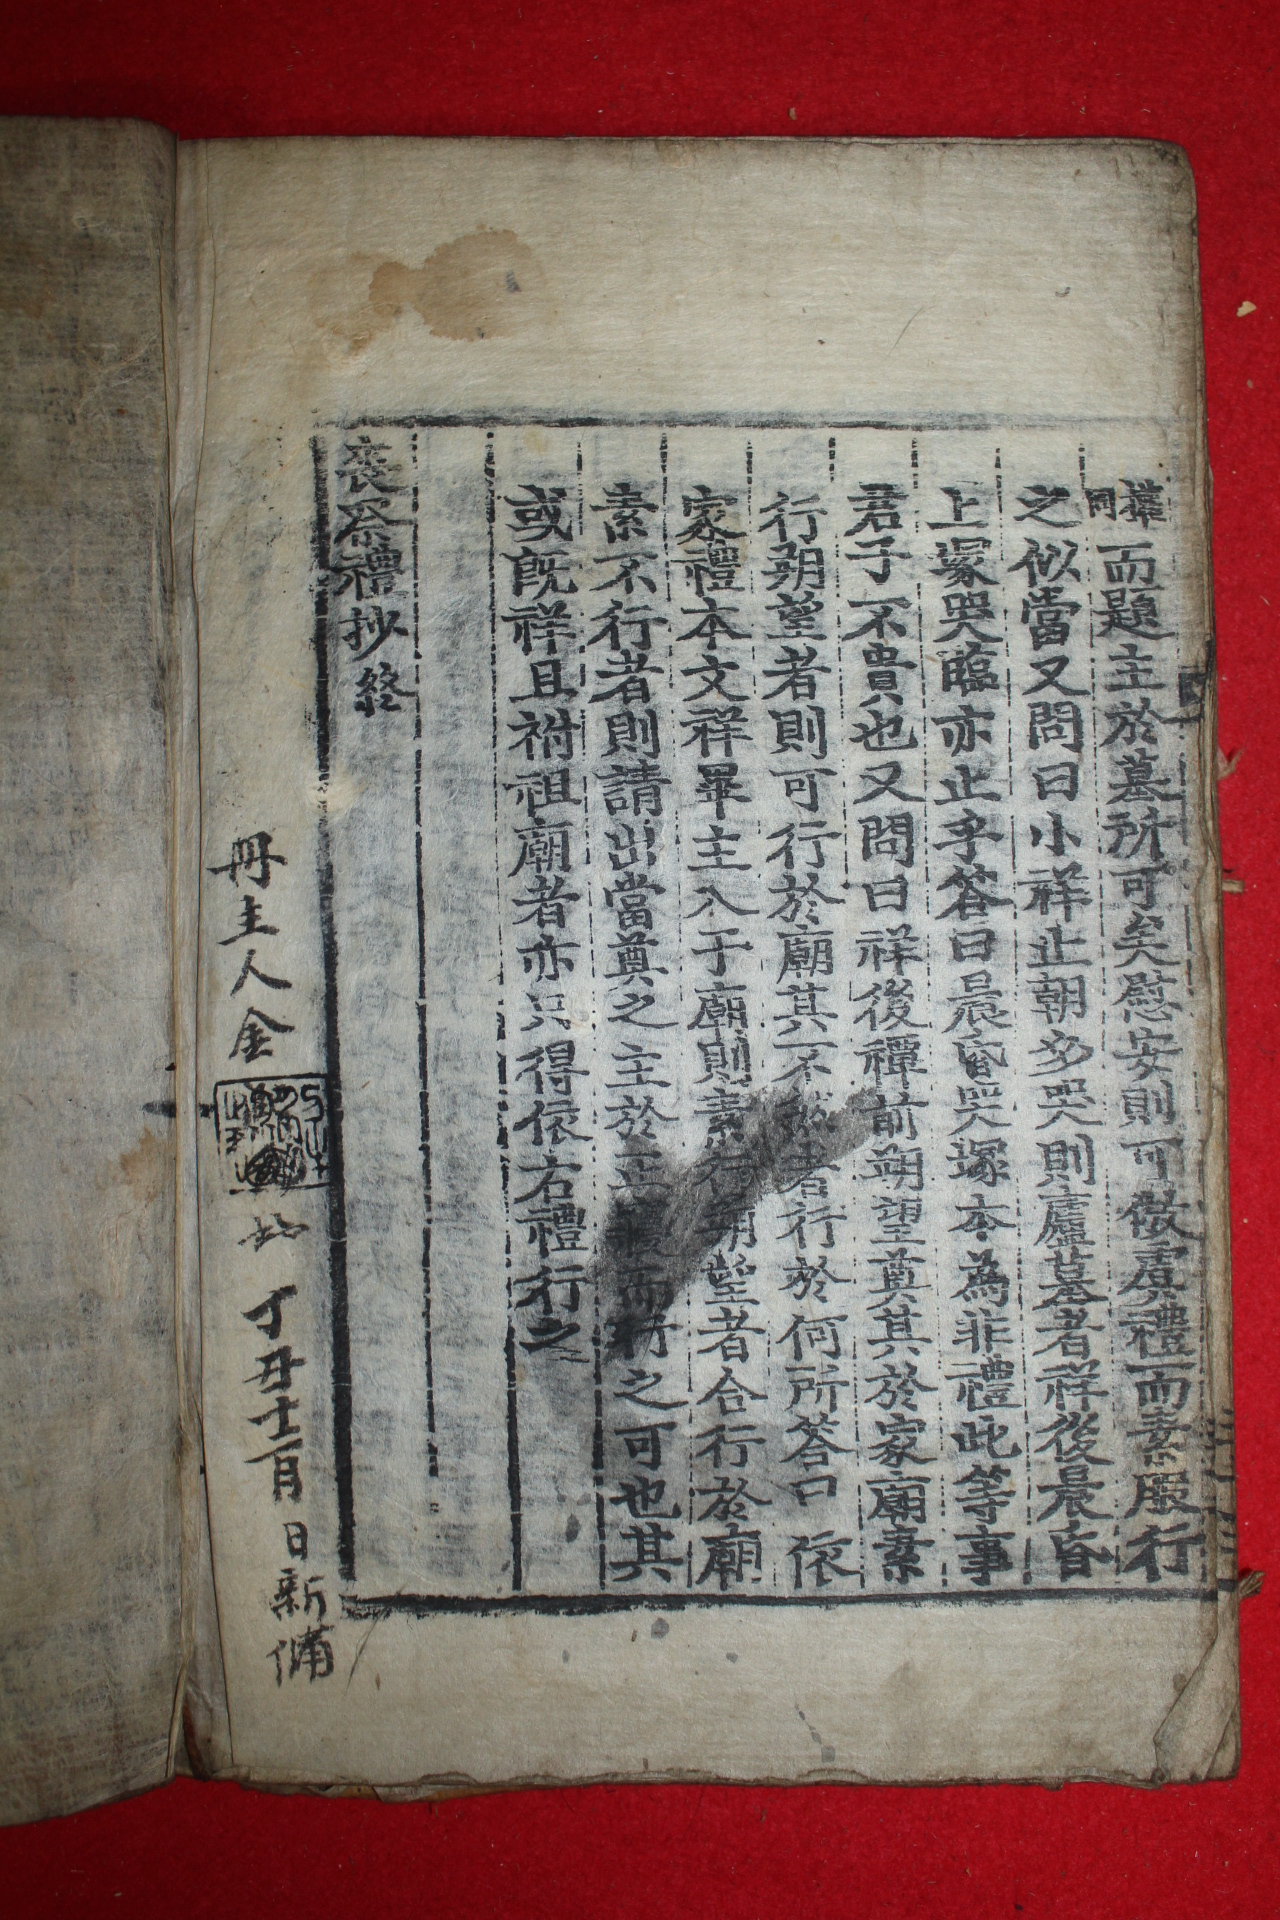 而題主於墓所可矣慰安則可倣虞禮而素服行
之似當又問曰小祥止朝夕哭則廬墓者祥後晨昏
上塚哭臨亦止乎答曰晨昏哭塚本為非禮此等事
君子不貴也又問曰祥後禫前朔望奠其於家廟素
行朔望者則可行於廟其不然者行於何所答曰依
家禮本文祥畢主入于廟則素行朔望者合行於廟
素不行者則請出當奠之主於正寢而行之可也其
或既祥且祔祖廟者亦只得依右禮行之
喪祭禮抄終
冊主人金
丁丑十二月日新備